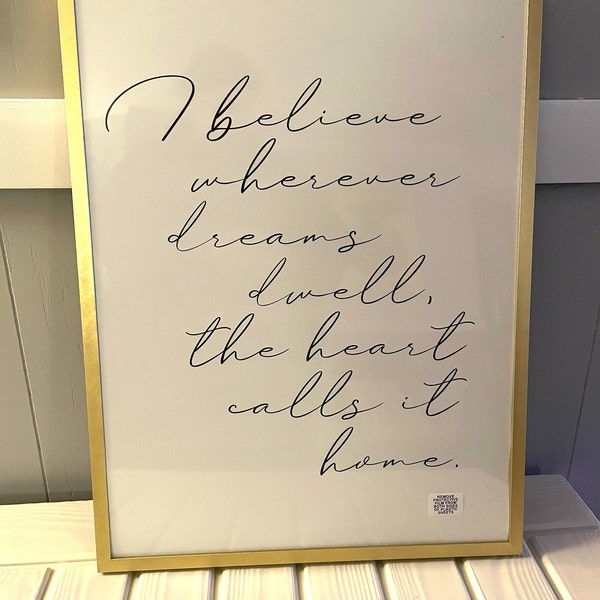 I believe
wherever
dreams
dwell,
the heart
calls it
home.
REMOVE
PROTECTIVE
FILM FROM
BOTH SIDES
OF PLASTIC
SHEETS